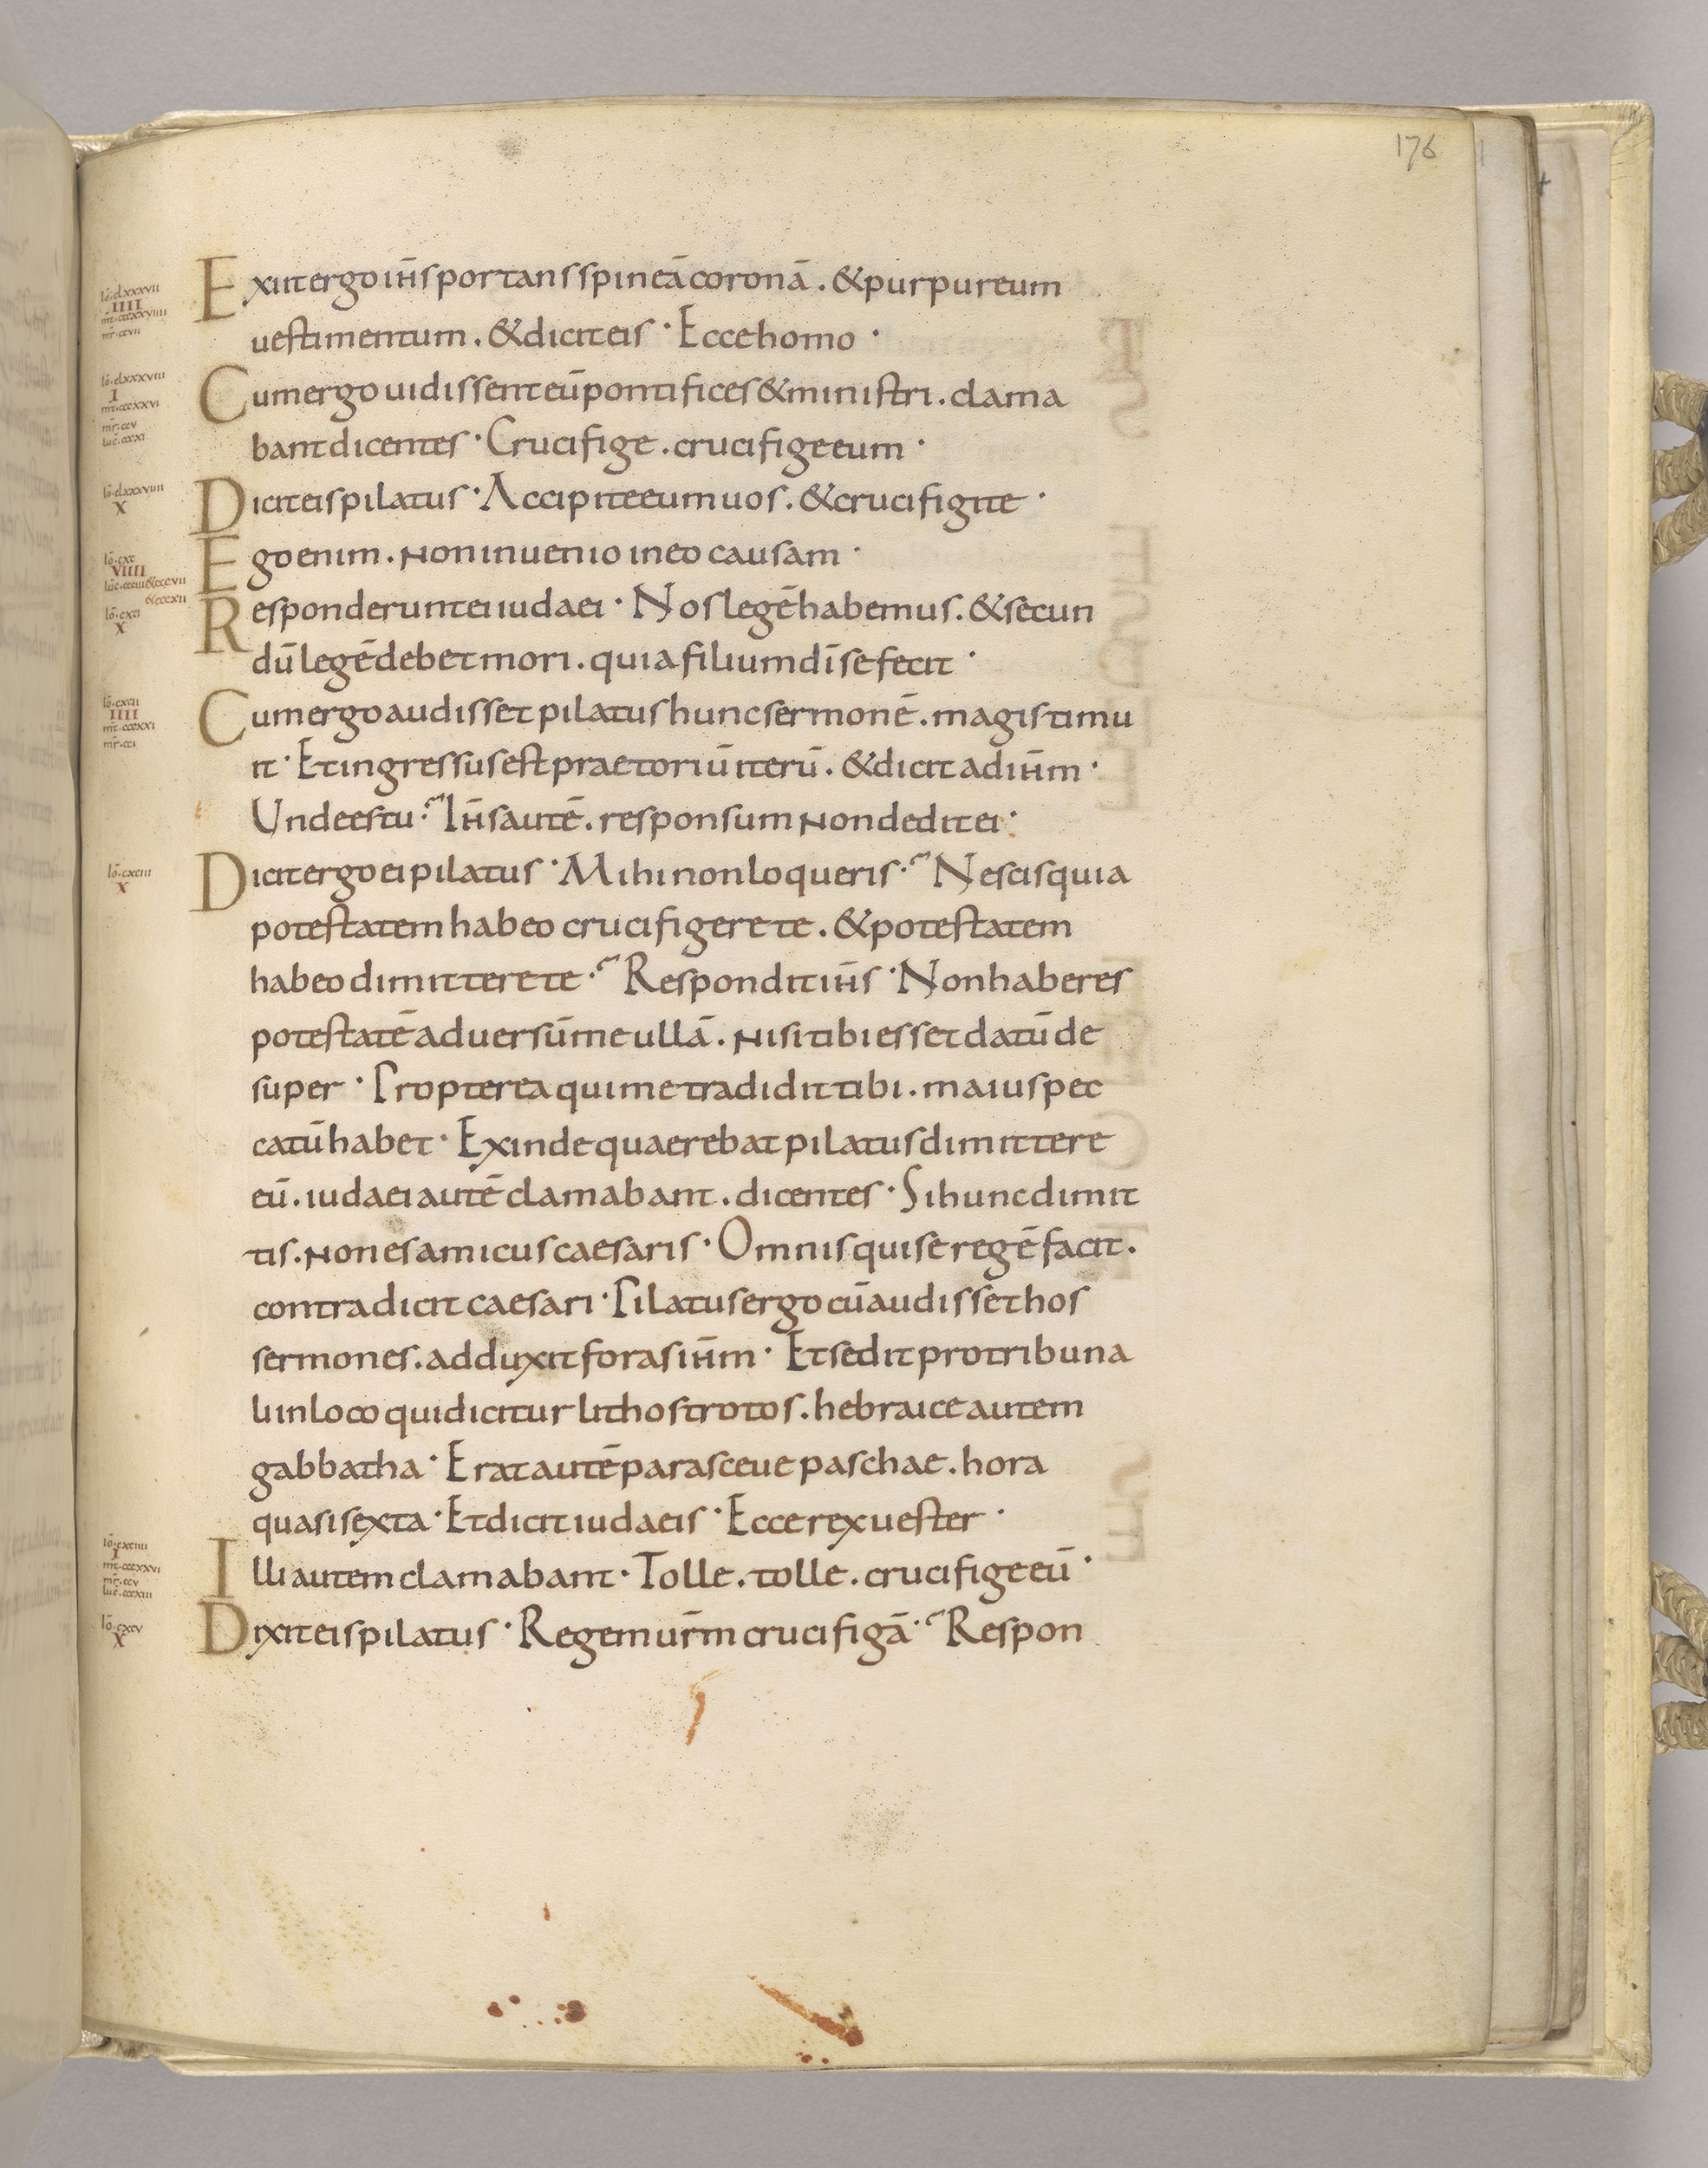 176
Exiit ergo ihs̄ portans spineā coronā. & purpureum
uestimentum. & dicit eis · Ecce homo ·
Cum ergo uidissent eū pontifices & ministri. clama
bant dicentes · Crucifige. crucifige eum ·
Dicit eis pilatus · Accipite eum uos. & crucifigite ·
Ego enim. non inuenio in eo causam ·
Responderunt ei iudaei · Nos legē habemus. & secun
dū legē debet mori. quia filium dī se fecit ·
Cum ergo audisset pilatus hunc sermonē. magis timu
it · Et ingressus est praetoriū iterū. & dicit ad ih̄m ·
Unde es tu? Ih̄s autē. responsum non dedit ei ·
Dicit ergo ei pilatus · Mihi non loqueris? Nescis quia
potestatem habeo crucifigere te. & potestatem
habeo dimittere te? Respondit ih̄s · Non haberes
potestatē aduersū me ullā. nisi tibi esset datū de
super · Propterea qui me tradidit tibi. maius pec
catū habet · Exinde quaerebat pilatus dimittere
eū. iudaei autē clamabant. dicentes · Si hunc dimit
tis. non es amicus caesaris · Omnis qui se regē facit.
contradicit caesari · Pilatus ergo cū audisset hos
sermones. adduxit foras ih̄m · Et sedit pro tribuna
li in loco qui dicitur lithostrotos. hebraice autem
gabbatha · Erat autē parasceue paschae. hora
quasi sexta · Et dicit iudaeis · Ecce rex uester ·
Illi autem clamabant · Tolle. tolle. crucifige eū ·
Dixit eis pilatus · Regem ur̄m crucifigā? Respon